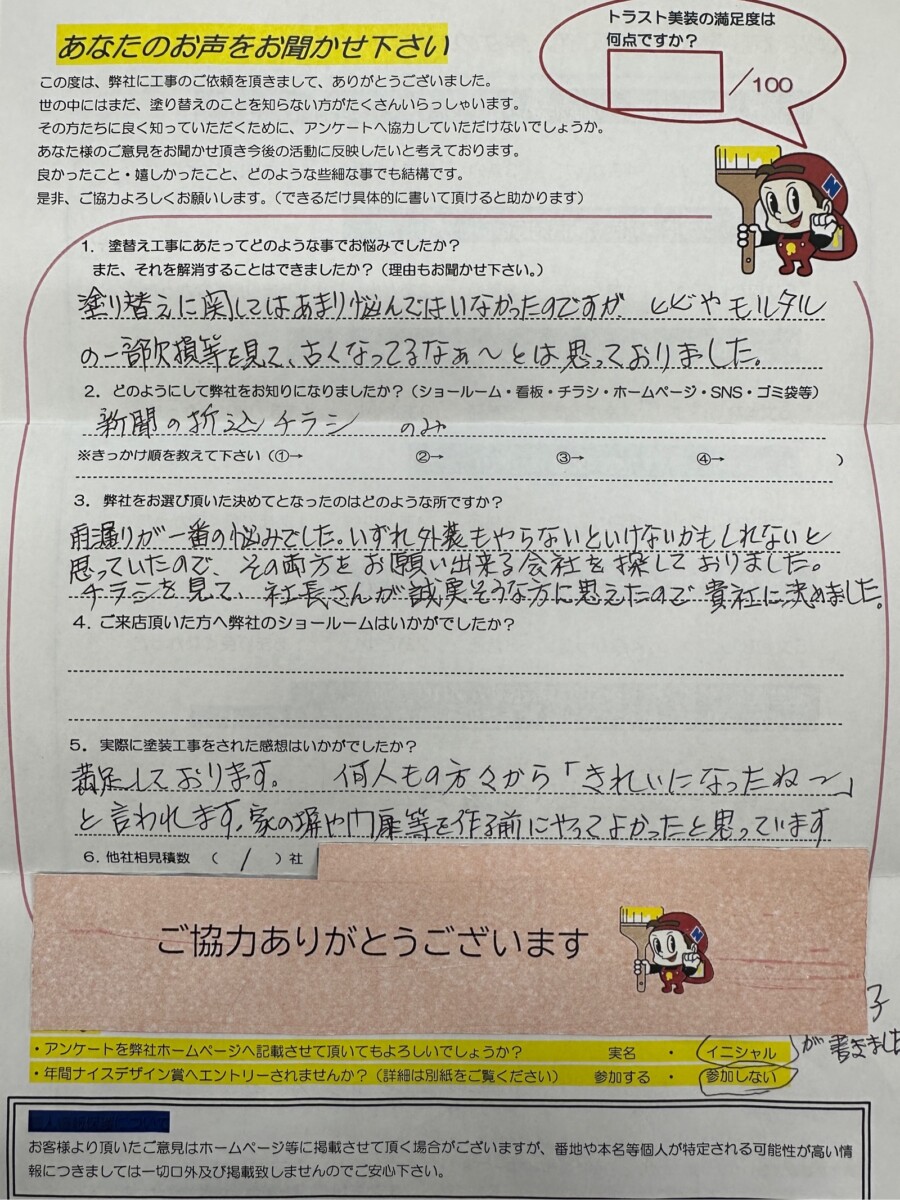 あなたのお声をお聞かせ下さい
トラスト美装の満足度は
何点ですか?
/100
この度は、弊社に工事のご依頼を頂きまして、ありがとうございました。
世の中にはまだ、塗り替えのことを知らない方がたくさんいらっしゃいます。
その方たちに良く知っていただくために、アンケートへ協力していただけないでしょうか。
あなた様のご意見をお聞かせ頂き今後の活動に反映したいと考えております。
良かったこと・嬉しかったこと、どのような些細な事でも結構です。
是非、ご協力よろしくお願いします。(できるだけ具体的に書いて頂けると助かります)
N
1. 塗替え工事にあたってどのような事でお悩みでしたか?
また、それを解消することはできましたか?(理由もお聞かせ下さい。)
塗り替えに関してはあまり悩んではいなかったのですが、ヒビやモルタル
の一部欠損等を見て、古くなってるなぁ〜とは思っておりました。
2. どのようにして弊社をお知りになりましたか?(ショールーム・看板・チラシ・ホームページ・SNS・ゴミ袋等)
新聞の折込チラシ のみ
※きっかけ順を教えて下さい(①→ ②→ ③→ ④→ )
3. 弊社をお選び頂いた決めてとなったのはどのような所ですか?
雨漏りが一番の悩みでした。いずれ外装もやらないといけないかもしれないと
思っていたので、その両方をお願い出来る会社を探しておりました。
チラシを見て、社長さんが誠実そうな方に思えたので貴社に決めました。
4. ご来店頂いた方へ弊社のショールームはいかがでしたか?
5. 実際に塗装工事をされた感想はいかがでしたか?
満足しております。 何人もの方々から「きれいになったね〜」
と言われます。家の塀や門扉等を作る前にやってよかったと思っています
6. 他社相見積数 ( 1 )社
ご協力ありがとうございます
N
子
・アンケートを弊社ホームページへ記載させて頂いてもよろしいでしょうか? 実名 ・ イニシャル が書きました
・年間ナイスデザイン賞へエントリーされませんか?(詳細は別紙をご覧ください) 参加する ・ 参加しない
お客様より頂いたご意見はホームページ等に掲載させて頂く場合がございますが、番地や本名等個人が特定される可能性が高い情
報につきましては一切口外及び掲載致しませんのでご安心下さい。